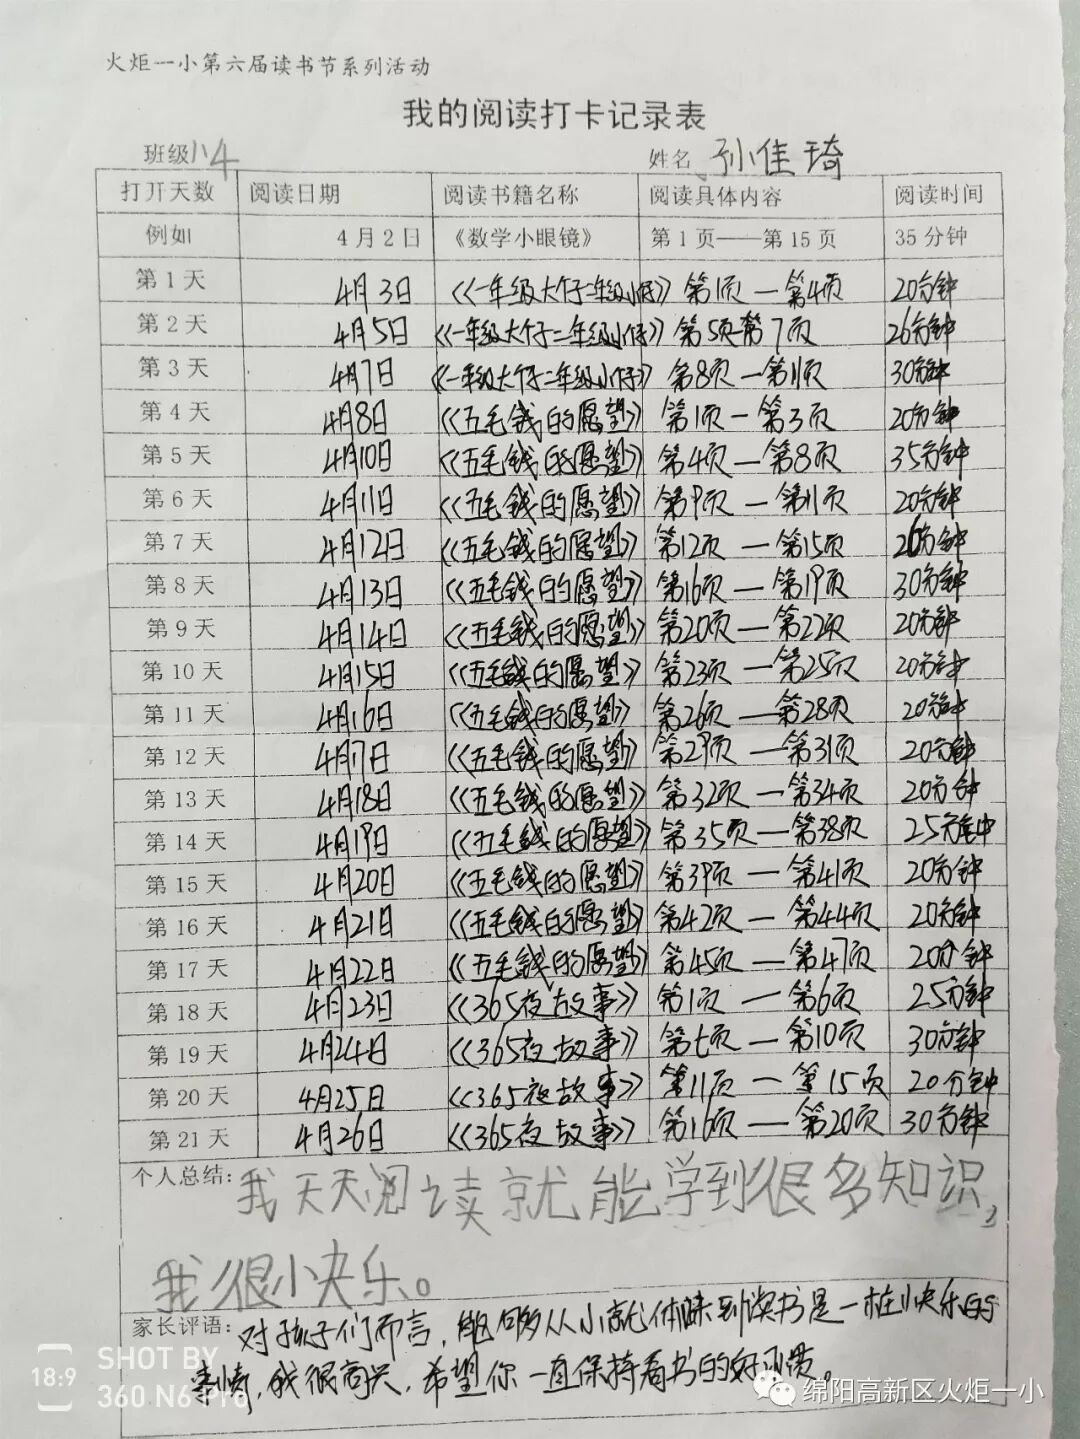 火炬一小第六届读书节系列活动
我的阅读打卡记录表
班级 1、4 姓名 孙佳琦
打开天数 阅读日期 阅读书籍名称 阅读具体内容 阅读时间
例如 4月2日 《数学小眼镜》 第1页——第15页 35分钟
第1天 4月3日 《一年级大个子二年级小个子》 第1页—第4页 20分钟
第2天 4月5日 《一年级大个子二年级小个子》 第5页第7页 26分钟
第3天 4月7日 《一年级大个子二年级小个子》 第8页—第11页 30分钟
第4天 4月8日 《五毛钱的愿望》 第1页—第3页 20分钟
第5天 4月10日 《五毛钱的愿望》 第4页—第8页 35分钟
第6天 4月11日 《五毛钱的愿望》 第9页—第11页 20分钟
第7天 4月12日 《五毛钱的愿望》 第12页—第15页 26分钟
第8天 4月13日 《五毛钱的愿望》 第16页—第19页 30分钟
第9天 4月14日 《五毛钱的愿望》 第20页—第22页 20分钟
第10天 4月15日 《五毛钱的愿望》 第23页—第25页 20分钟
第11天 4月16日 《五毛钱的愿望》 第26页—第28页 20分钟
第12天 4月17日 《五毛钱的愿望》 第29页—第31页 20分钟
第13天 4月18日 《五毛钱的愿望》 第32页—第34页 20分钟
第14天 4月19日 《五毛钱的愿望》 第35页—第38页 25分钟
第15天 4月20日 《五毛钱的愿望》 第39页—第41页 20分钟
第16天 4月21日 《五毛钱的愿望》 第42页—第44页 20分钟
第17天 4月22日 《五毛钱的愿望》 第45页—第47页 20分钟
第18天 4月23日 《365夜故事》 第1页—第6页 25分钟
第19天 4月24日 《365夜故事》 第七页—第10页 30分钟
第20天 4月25日 《365夜故事》 第11页—第15页 20分钟
第21天 4月26日 《365夜故事》 第16页—第20页 30分钟
个人总结: 我天天阅读就能学到很多知识,
我很快乐。
家长评语: 对孩子们而言,能够从小就体味到读书是一桩快乐的
事情,我很高兴,希望你一直保持看书的好习惯。
18:9 SHOT BY
360 N6 Pro
绵阳高新区火炬一小